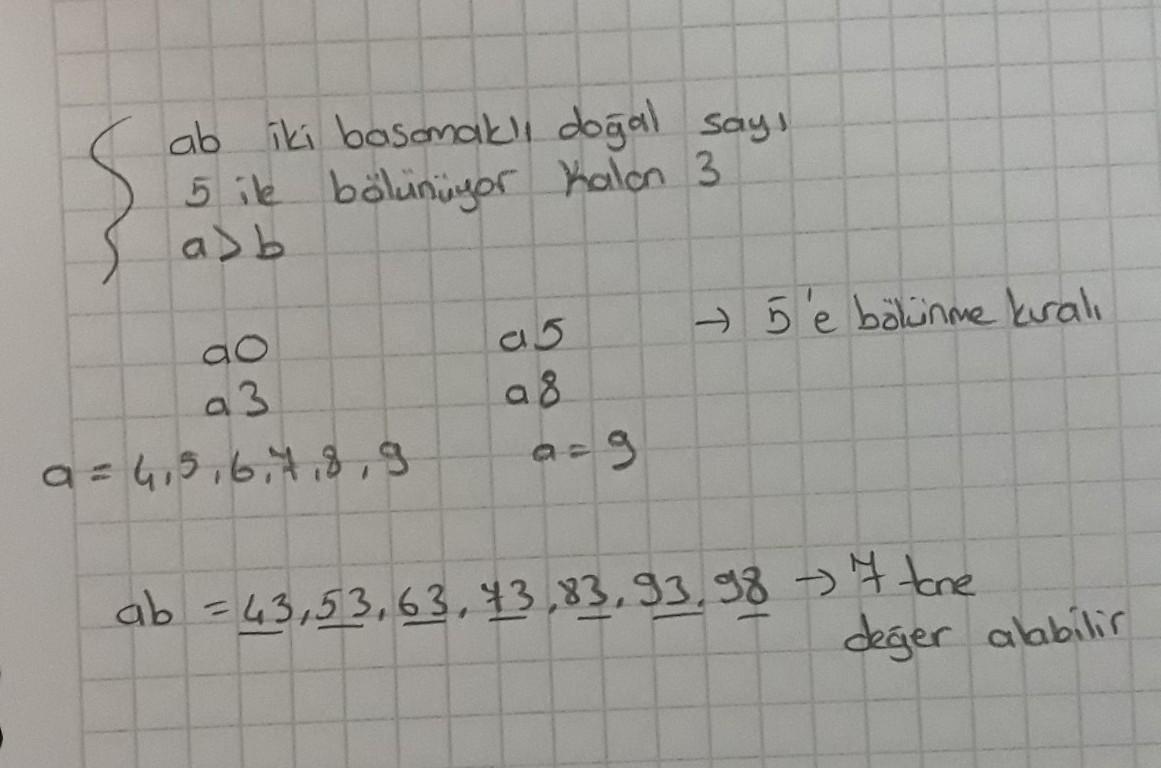 ab iki basamaklı doğal sayı
5 ile bölünüyor kalan 3
a>b
a0 a5 → 5'e bölünme kuralı
a3 a8
a = 4,5,6,7,8,9 a = 9
ab = 43,53,63,73,83,93,98 → 7 tane
değer alabilir